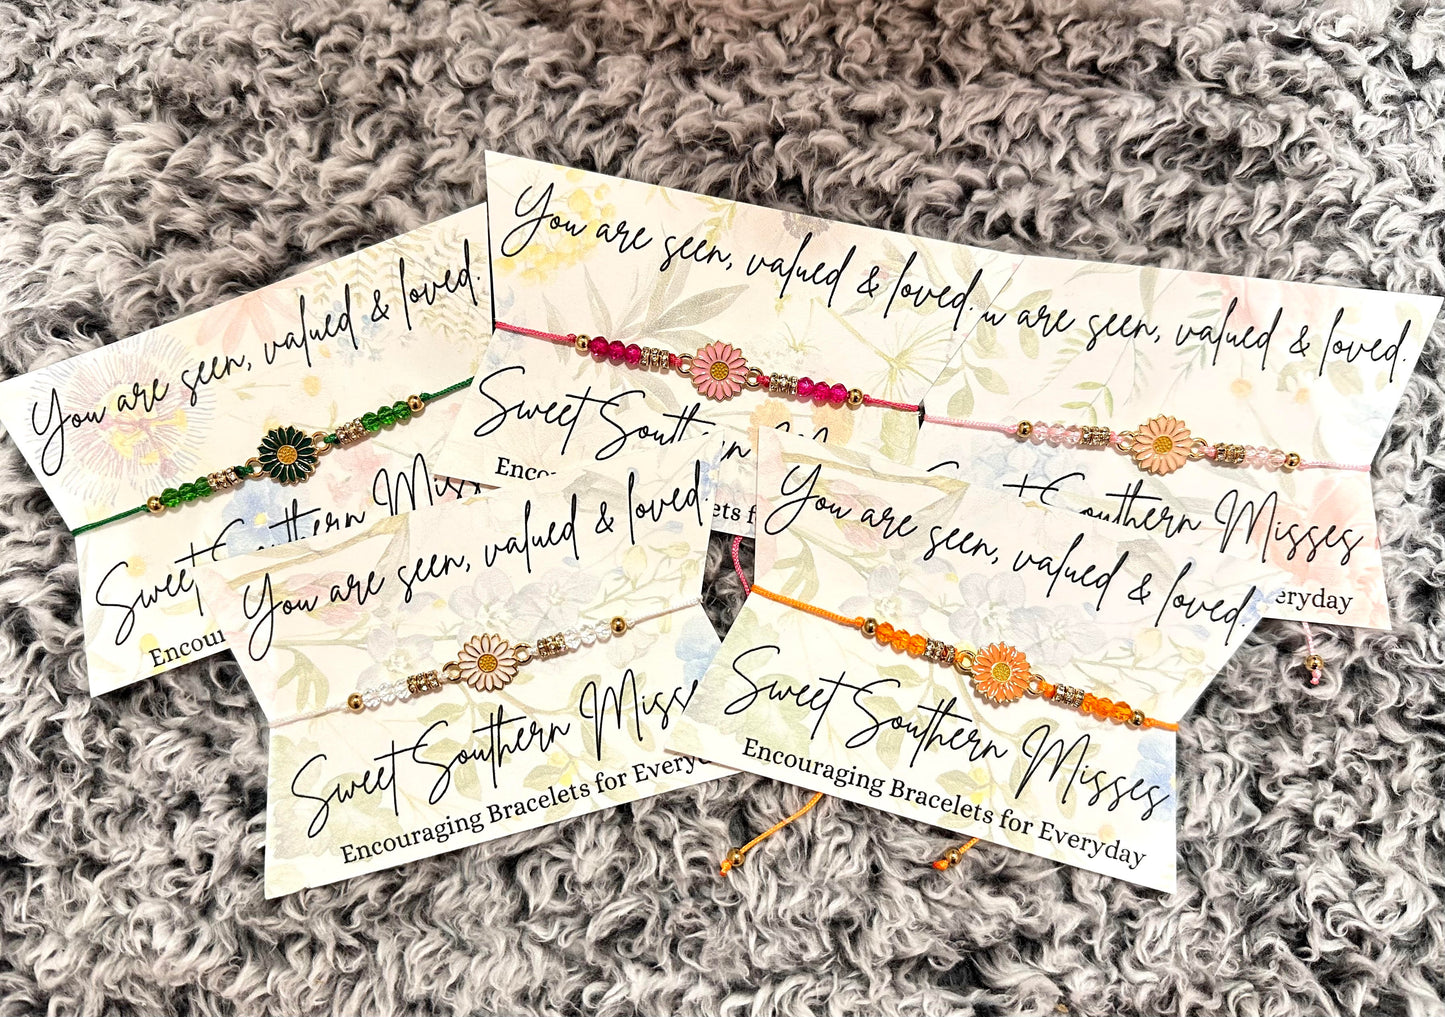 You are seen, valued & loved.
Sweet Southern Miss
Encou
You are seen, valued & loved.
Sweet Southern
Enco
ets f
are seen, valued & loved.
Southern Misses
eryday
You are seen, valued & loved.
Sweet Southern Misse
Encouraging Bracelets for Everyd
You are seen, valued & loved.
Sweet Southern Misses
Encouraging Bracelets for Everyday